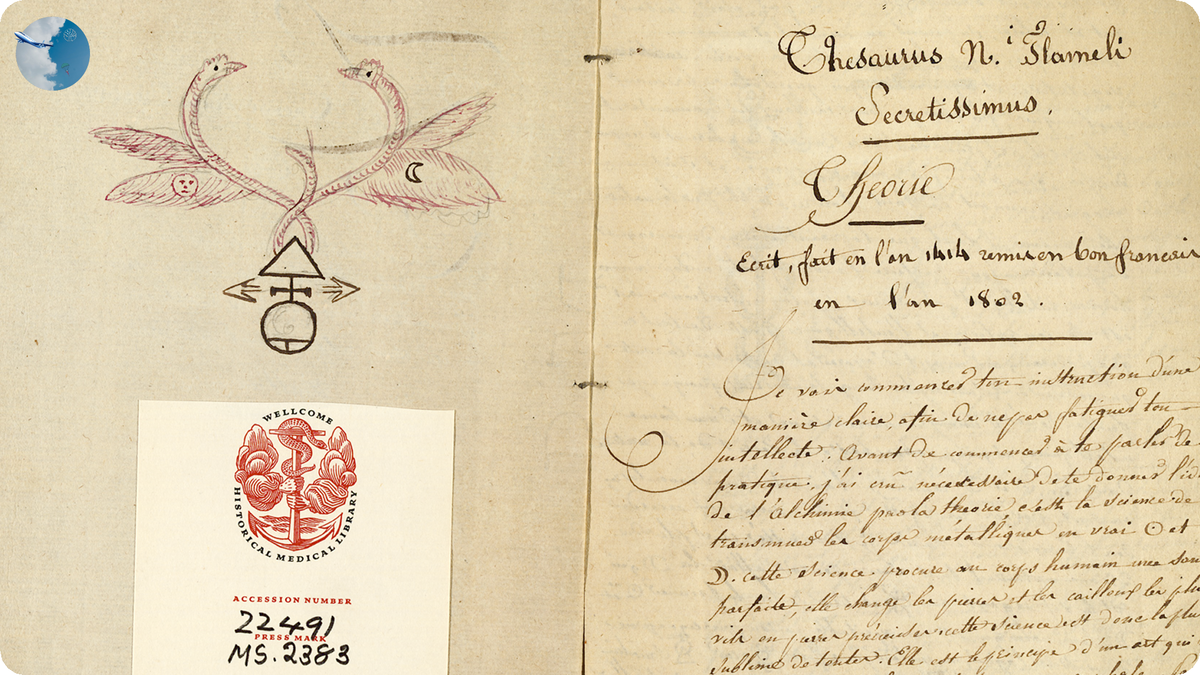 WELLCOME
HISTORICAL MEDICAL LIBRARY
ACCESSION NUMBER
22491
PRESS MARK
MS. 2383
Thesaurus N.i Flameli
Secretissimus.
Théorie
Ecrit, fait en l'an 1414 remis en bon francais
en l'an 1802.
Je vais commencer ton instruction d'une
manière claire, afin de ne pas fatiguer ton
intellecte. Avant de commencer à te parler de
pratique, j'ai cru nécessaire de te donner l'id
de l'alchimie par la theorie c'est la science de
transmuer les corps métalliques en vrai ☉ et
☽. cette science procure au corps humain une san
parfaite, elle change les pierres et les cailloux les plus
vils en pierres précieuses, cette science est donc la plu
sublime de toutes. Elle est le principe d'un art qui